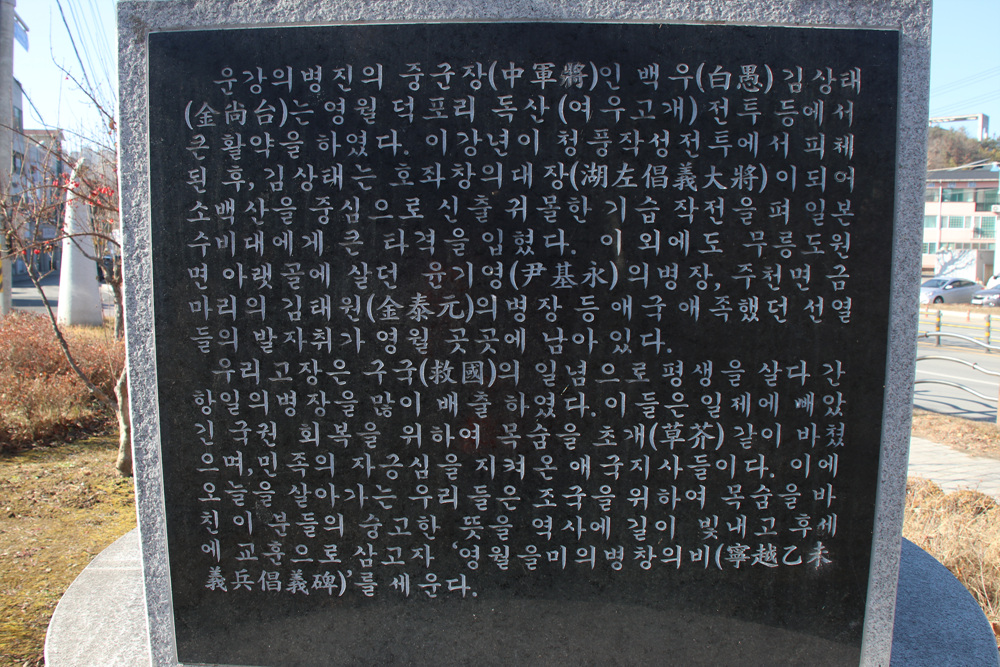 운강의병진의 중군장(中軍將)인 백우(白愚)김상태
(金尙台)는 영월 덕포리 독산 (여우고개) 전투 등에서
큰 활약을 하였다. 이강년이 청풍작성전투에서 피체
된 후, 김상태는 호좌창의대장(湖左倡義大將)이되어
소백산을 중심으로 신출귀몰한 기습작전을 펴 일본
수비대에게 큰 타격을 입혔다. 이 외에도 무릉도원
면 아랫골에 살던 윤기영(尹基永)의병장, 주천면 금
마리의 김태원(金泰元)의병장 등 애국애족했던 선열
들의 발자취가 영월 곳곳에 남아 있다.
우리고장은 구국(救國)의 일념으로 평생을 살다 간
항일의병장을 많이 배출 하였다. 이들은일제에 빼았
긴 국권 회복을 위하여 목숨을 초개(草芥)같이 바쳤
으며, 민족의 자긍심을 지켜온 애국지사들이다. 이에
오늘을 살아가는 우리들은 조국을 위하여 목숨을 바
친 이 분들의 숭고한 뜻을 역사에 길이 빛내고 후세
에 교훈으로 삼고자 '영월을미의병창의비(寧越乙未
義兵倡義碑)'를 세운다.